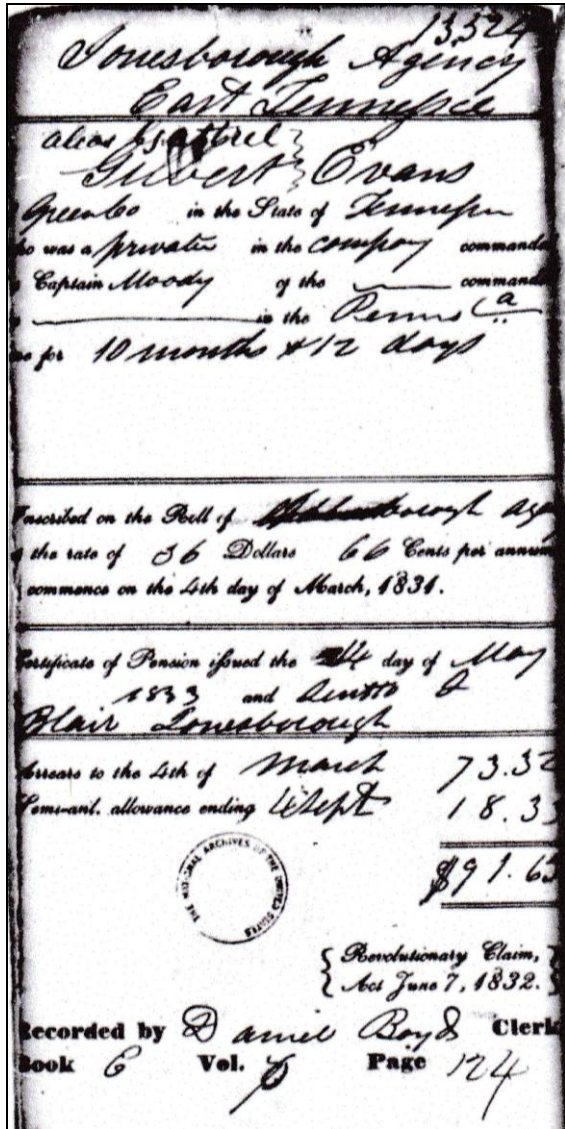 13,524
Jonesborough Agency
East Tennessee
alias Gabriel }
Gilbert } Evans
Green Co in the State of Tennessee
who was a private in the company commanded
Captain Moody of the — commanded
— in the Penns a
for 10 months & 12 days
Inscribed on the Roll of borough agen
the rate of 36 Dollars 66 Cents per annum
commence on the 4th day of March, 1831.
Certificate of Pension issued the day of May
1833 and sent to J
Blair Jonesborough
Arrears to the 4th of March 73.32
Semi-anl. allowance ending 4 Sept 18.33
$91.65
THE NATIONAL ARCHIVES OF THE UNITED STATES
{ Revolutionary Claim, }
{ Act June 7, 1832. }
Recorded by Daniel Boyd Clerk
Book E Vol. Page 124